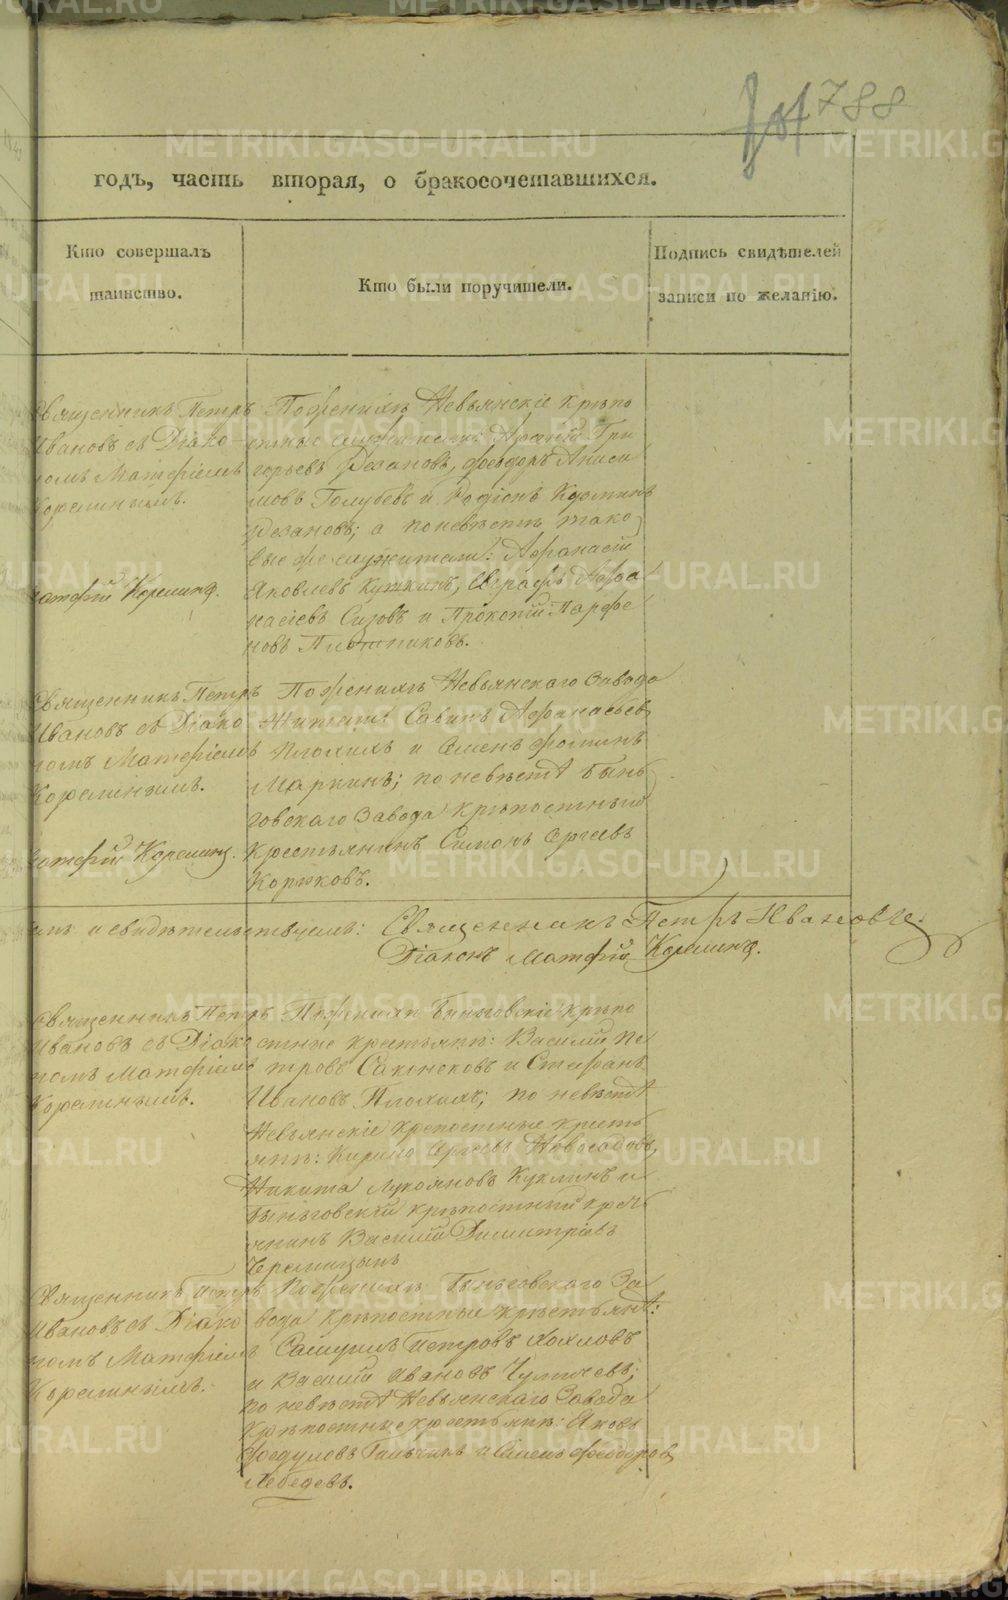 788
годъ, часть вторая, о бракосочетавшихся.
Кто совершалъ
таинство.
Кто были поручители.
Подпись свидѣтелей
записи по желанію.
Священникъ Петръ
Ивановъ съ Діако-
номъ Матфіемъ
Корелинымъ.
Матфій Корелинъ.
По женихѣ Невьянскіе крѣпо
стные служители: Гри
горьевъ Резановъ, Феодоръ Аниси
мовъ Голубевъ и Родіонъ Козминъ
Резановъ; а по невѣстѣ тако
вые же служители: Афанасій
Яковлевъ Куткинъ, Евграфъ Афа
насіевъ Сизовъ и Прокопій Парфе
новъ Плотниковъ.
Священникъ Петръ
Ивановъ съ Діако
номъ Матфіемъ
Корелинымъ.
Матфій Корелинъ.
По женихѣ Невьянскаго Завода
жители Савинъ Афанасьевъ
Плохихъ и Семенъ Фоминъ
Маркинъ; по невѣстѣ Бынь
говскаго Завода крѣпостный
крестьянинъ Симонъ Сергѣевъ
Коряковъ.
и свидѣтельствуемъ: Священникъ Петръ Ивановъ.
Діаконъ Матфій Корелинъ.
Священникъ Петръ
Ивановъ съ Діако
номъ Матфіемъ
Корелинымъ.
По женихѣ Быньговскіе крѣпо
стные крестьяне: Василий Пе
тровъ Саконековъ и Стефанъ
Ивановъ Плохихъ; по невѣстѣ
Невьянскіе крепостные кресть
яне: Кирило Сергѣевъ Новоселовъ,
Никита Лукояновъ Куклинъ и
Быньговскій крѣпостный крестья
нинъ Василий Димитріевъ
Священникъ Петръ
Ивановъ съ Діако
номъ Матфіемъ
Корелинымъ.
По женихѣ Быньговскаго За
вода крѣпостные крестьяне:
Самуилъ Петровъ Хохловъ
и Василий Ивановъ
по невѣстѣ Невьянскаго Завода
крѣпостные крестьяне: Яковъ
Федуловъ и Семенъ Феодоровъ
Лебедевъ.
METRIKI.GASO-URAL.RU